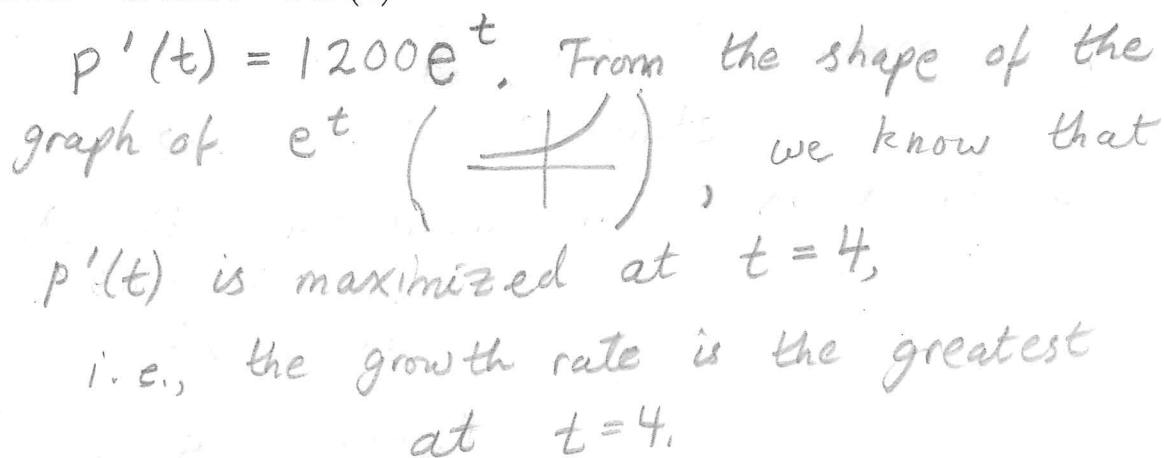 p'(t) = 1200e^t. From the shape of the
graph of e^t ( ), we know that
p'(t) is maximized at t = 4,
i.e., the growth rate is the greatest
at t = 4.